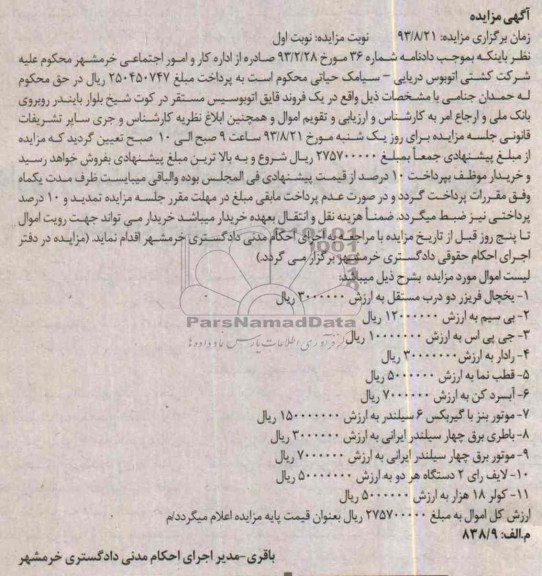 آگهی مزایده
زمان برگزاری مزایده: ۹۳/۸/۲۱ نوبت مزایده: نوبت اول
نظر باینکه بموجب دادنامه شماره ۳۶ مورخ ۹۳/۲/۲۸ صادره از اداره کار و امور اجتماعی خرمشهر محکوم علیه
شرکت کشتی اتوبوس دریایی – سیامک حیاتی محکوم است به پرداخت مبلغ ۲۵۰۴۵۰۷۴۷ ریال در حق محکوم
له حمدان جنامی با مشخصات ذیل واقع در یک فروند قایق اتوبوسیس مستقر در کوت شیخ بلوار بایندر روبروی
بانک ملی و ارجاع امر به کارشناس و ارزیابی و تقویم اموال و همچنین ابلاغ نظریه کارشناس و جری سایر تشریفات
قانونی جلسه مزایده برای روز یک شنبه مورخ ۹۳/۸/۲۱ ساعت ۹ صبح الی ۱۰ صبح تعیین گردید که مزایده
از مبلغ پیشنهادی جمعاً بمبلغ ۲۷۵۷۰۰۰۰۰ ریال شروع و به بالا ترین مبلغ پیشنهادی بفروش خواهد رسید
و خریدار موظف بپرداخت ۱۰ درصد از قیمت پیشنهادی فی المجلس بوده والباقی میبایست ظرف مدت یکماه
وفق مقررات پرداخت گردد و در صورت عدم پرداخت مابقی مبلغ در مهلت مقرر جلسه مزایده تمدید و ۱۰ درصد
پرداختی نیز ضبط میگردد. ضمناً هزینه نقل و انتقال بعهده خریدار میباشد خریدار می تواند جهت رویت اموال
تا پنج روز قبل از تاریخ مزایده با مراجعه به اجرای احکام مدنی دادگستری خرمشهر اقدام نماید. (مزایده در دفتر
اجرای احکام حقوقی دادگستری خرمشهر برگزار می گردد.)
لیست اموال مورد مزایده بشرح ذیل میباشد:
۱- یخچال فریزر دو درب مستقل به ارزش ۳۰۰۰۰۰۰ ریال
۲- بی سیم به ارزش ۱۲۰۰۰۰۰۰ ریال
ParsNamadData
۳- جی پی اس به ارزش ۱۰۰۰۰۰۰۰ ریال
۴- رادار به ارزش ۳۰۰۰۰۰۰۰ ریال
۵- قطب نما به ارزش ۵۰۰۰۰۰۰ ریال
۶- آبسرد کن به ارزش ۷۰۰۰۰۰۰ ریال
۷- موتور بنز با گیربکس ۶ سیلندر به ارزش ۱۵۰۰۰۰۰۰۰ ریال
۸- باطری برق چهار سیلندر ایرانی به ارزش ۳۰۰۰۰۰۰ ریال
۹- موتور برق چهار سیلندر ایرانی به ارزش ۷۰۰۰۰۰۰ ریال
۱۰- لایف رای ۲ دستگاه هر دو به ارزش ۵۰۰۰۰۰۰۰ ریال
۱۱- کولر ۱۸ هزار به ارزش ۵۰۰۰۰۰۰ ریال
ارزش کل اموال به مبلغ ۲۷۵۷۰۰۰۰۰ ریال بعنوان قیمت پایه مزایده اعلام میگردد/م
م.الف: ۸۳۸/۹
باقری-مدیر اجرای احکام مدنی دادگستری خرمشهر